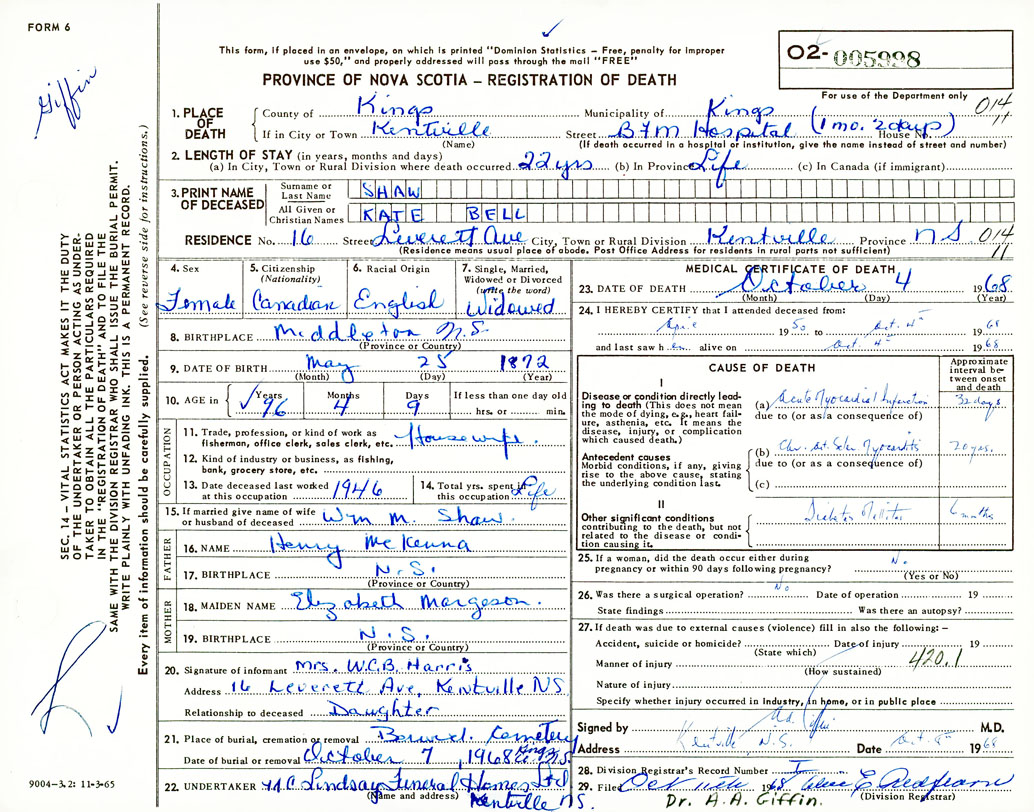 FORM 6
This form, if placed in an envelope, on which is printed "Dominion Statistics – Free, penalty for improper
use $50," and properly addressed will pass through the mail "FREE"
PROVINCE OF NOVA SCOTIA – REGISTRATION OF DEATH
02- 005998
For use of the Department only
014
11
Giffin
SEC. 14 – VITAL STATISTICS ACT MAKES IT THE DUTY
OF THE UNDERTAKER OR PERSON ACTING AS UNDER-
TAKER TO OBTAIN ALL THE PARTICULARS REQUIRED
IN THE "REGISTRATION OF DEATH" AND TO FILE THE
SAME WITH THE DIVISION REGISTRAR WHO SHALL ISSUE THE BURIAL PERMIT.
WRITE PLAINLY WITH UNFADING INK. THIS IS A PERMANENT RECORD.
Every item of information should be carefully supplied. (See reverse side for instructions.)
1. PLACE OF DEATH
County of Kings Municipality of Kings
If in City or Town Kentville Street B F M Hospital House No. (1 mo. 2 days)
(Name) (If death occurred in a hospital or institution, give the name instead of street and number)
2. LENGTH OF STAY (in years, months and days)
(a) In City, Town or Rural Division where death occurred 22 yrs (b) In Province Life (c) In Canada (if immigrant)
3. PRINT NAME OF DECEASED
Surname or Last Name SHAW
All Given or Christian Names KATE BELL
RESIDENCE No. 16 Street Leverett Ave City, Town or Rural Division Kentville Province NS 014
11
(Residence means usual place of abode. Post Office Address for residents in rural parts not sufficient)
4. Sex Female
5. Citizenship (Nationality) Canadian
6. Racial Origin English
7. Single, Married, Widowed or Divorced (write the word) Widowed
8. BIRTHPLACE Middleton N.S.
(Province or Country)
9. DATE OF BIRTH May 25 1872
(Month) (Day) (Year)
10. AGE in Years 96 Months 4 Days 9 If less than one day old hrs. or min.
OCCUPATION
11. Trade, profession, or kind of work as fisherman, office clerk, sales clerk, etc. Housewife.
12. Kind of industry or business, as fishing, bank, grocery store, etc.
13. Date deceased last worked at this occupation 1946
14. Total yrs. spent in this occupation Life
15. If married give name of wife or husband of deceased Wm M. Shaw.
FATHER
16. NAME Henry McKenna
17. BIRTHPLACE N.S.
(Province or Country)
MOTHER
18. MAIDEN NAME Elizabeth Margeson.
19. BIRTHPLACE N.S.
(Province or Country)
20. Signature of informant Mrs. W.C.B. Harris
Address 16 Leverett Ave, Kentville NS
Relationship to deceased Daughter
21. Place of burial, cremation or removal Cemetery
Date of burial or removal October 7, 1968 Kings N.S.
22. UNDERTAKER Lindsay Funeral Homes Ltd
(Name and address) Kentville NS.
9004-3.2: 11-3-65
MEDICAL CERTIFICATE OF DEATH
23. DATE OF DEATH October 4 1968
(Month) (Day) (Year)
24. I HEREBY CERTIFY that I attended deceased from:
April 1950 to Oct. 4th 1968
and last saw her alive on Oct 4th 1968
CAUSE OF DEATH
Approximate interval between onset and death
I
Disease or condition directly leading to death (This does not mean the mode of dying, e.g., heart failure, asthenia, etc. It means the disease, injury, or complication which caused death.)
(a) Acute Myocardial Infarction 32 days
due to (or as a consequence of)
Antecedent causes
Morbid conditions, if any, giving rise to the above cause, stating the underlying condition last.
(b) Myocarditis 20 yrs.
due to (or as a consequence of)
(c)
II
Other significant conditions contributing to the death, but not related to the disease or condition causing it.
Diabetes Mellitus 6 months
25. If a woman, did the death occur either during pregnancy or within 90 days following pregnancy? No.
(Yes or No)
26. Was there a surgical operation? No Date of operation 19
State findings Was there an autopsy?
27. If death was due to external causes (violence) fill in also the following: –
Accident, suicide or homicide? Date of injury 19
(State which)
Manner of injury 420.1
(How sustained)
Nature of injury
Specify whether injury occurred in Industry, in home, or in public place
Signed by M.D.
Address Kentville, N.S. Date Oct. 1968
28. Division Registrar's Record Number
29. Filed Oct 11th 1968
(Division Registrar)
Dr. A.A. Giffin.